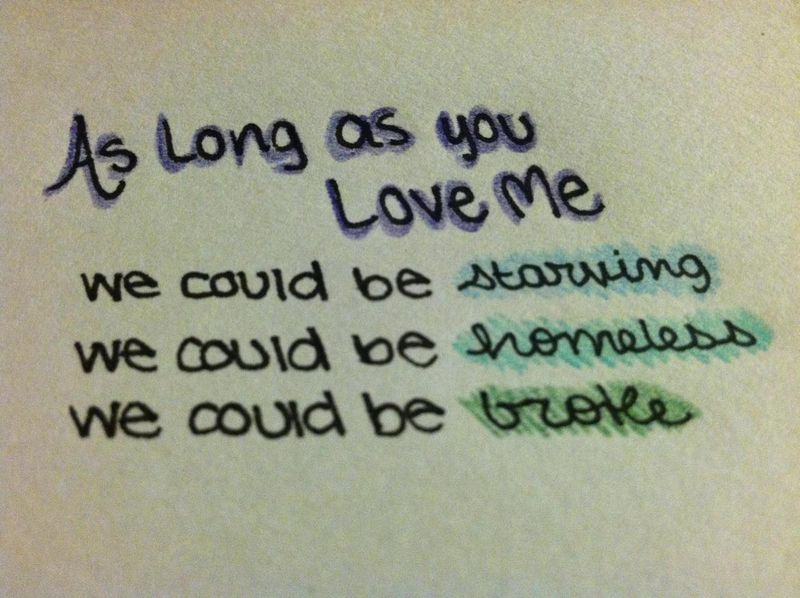 As Long as you
Love Me
we could be starving
we could be homeless
we could be broke